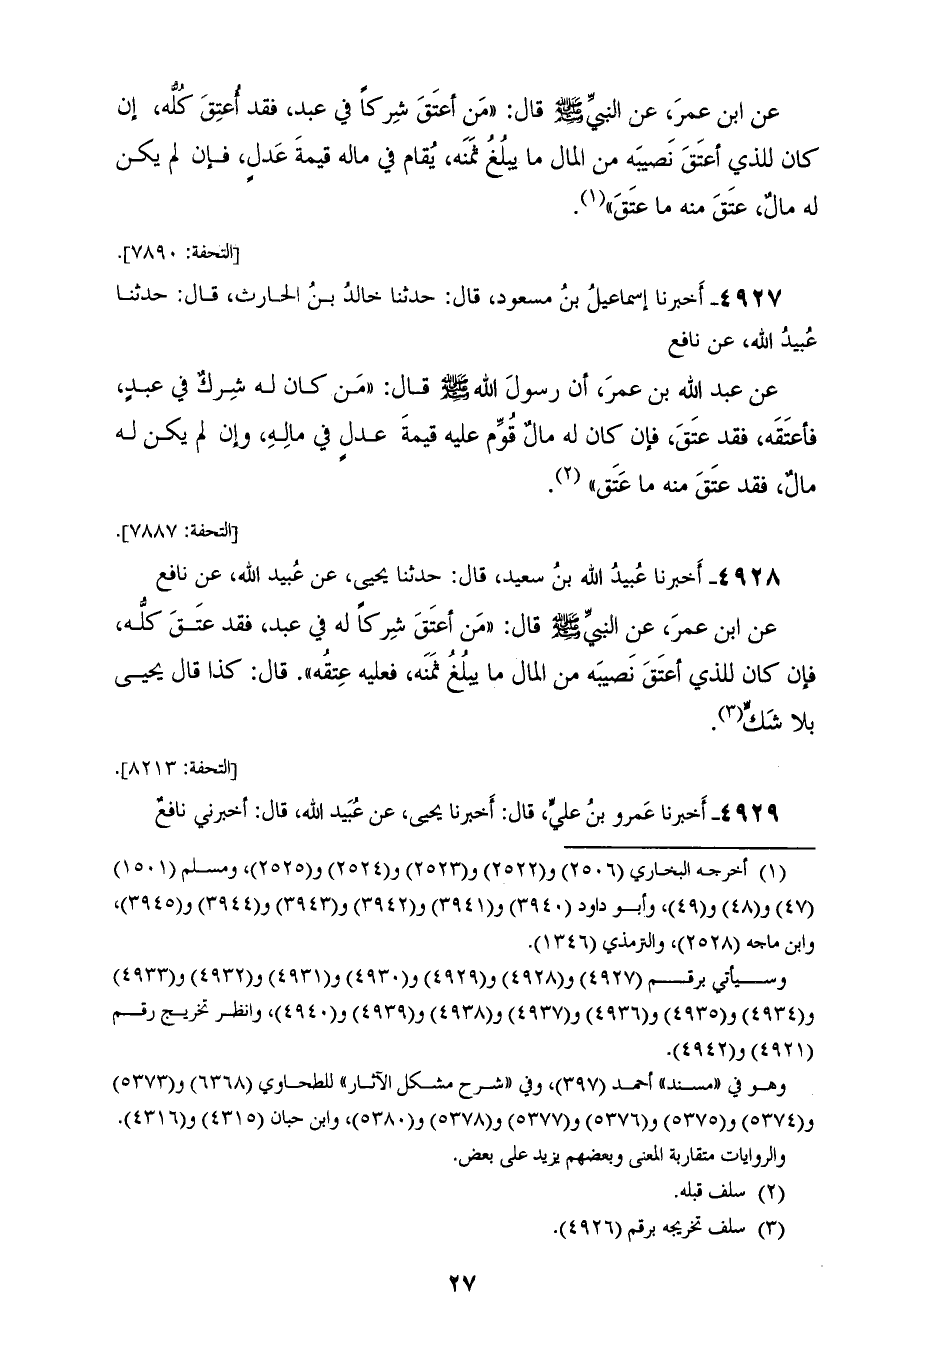 عن ابن عمرَ، عن النبيِّ ﷺ قال: «مَن أعتَقَ شِركاً في عبد، فقد أُعتِقَ كُلُّه، إن
كان للذي أعتَقَ نَصيبَه من المال ما يبلُغُ ثمَنَه، يُقام في ماله قيمةَ عَدلٍ، فإن لم يكن
له مالٌ، عتَقَ منه ما عتَقَ»(١).
[التحفة: ٧٨٩٠].
٤٩٢٧ـ أَخبرنا إسماعيلُ بنُ مسعود، قال: حدثنا خالدُ بنُ الحارث، قال: حدثنا
عُبيدُ الله، عن نافع
عن عبد الله بن عمرَ، أن رسولَ الله ﷺ قال: «مَن كان له شِركٌ في عبدٍ،
فأعتَقَه، فقد عتَقَ، فإن كان له مالٌ قُوِّم عليه قيمةَ عدلٍ في مالِهِ، وإن لم يكن له
مالٌ، فقد عتَقَ منه ما عَتَق» (٢).
[التحفة: ٧٨٨٧].
٤٩٢٨ـ أَخبرنا عُبيدُ الله بنُ سعيد، قال: حدثنا يحيى، عن عُبيد الله، عن نافع
عن ابن عمرَ، عن النبيِّ ﷺ قال: «مَن أعتَقَ شِركاً له في عبد، فقد عتَقَ كلُّه،
فإن كان للذي أعتَقَ نَصيبَه من المال ما يبلُغُ ثمَنَه، فعليه عِتقُه». قال: كذا قال يحيى
بلا شَكٍّ(٣).
[التحفة: ٨٢١٣].
٤٩٢٩ـ أَخبرنا عَمرو بنُ عليٍّ، قال: أَخبرنا يحيى، عن عُبَيد الله، قال: أخبرني نافعٌ
(١) أخرجه البخاري (٢٥٠٦) و(٢٥٢٢) و(٢٥٢٣) و(٢٥٢٤) و(٢٥٢٥)، ومسلم (١٥٠١)
(٤٧) و(٤٨) و(٤٩)، وأبو داود (٣٩٤٠) و(٣٩٤١) و(٣٩٤٢) و(٣٩٤٣) و(٣٩٤٤) و(٣٩٤٥)،
وابن ماجه (٢٥٢٨)، والترمذي (١٣٤٦).
وسيأتي برقم (٤٩٢٧) و(٤٩٢٨) و(٤٩٢٩) و(٤٩٣٠) و(٤٩٣١) و(٤٩٣٢) و(٤٩٣٣)
و(٤٩٣٤) و(٤٩٣٥) و(٤٩٣٦) و(٤٩٣٧) و(٤٩٣٨) و(٤٩٣٩) و(٤٩٤٠)، وانظر تخريج رقم
(٤٩٢١) و(٤٩٤٢).
وهو في «مسند» أحمد (٣٩٧)، وفي «شرح مشكل الآثار» للطحاوي (٦٣٦٨) و(٥٣٧٣)
و(٥٣٧٤) و(٥٣٧٥) و(٥٣٧٦) و(٥٣٧٧) و(٥٣٧٨) و(٥٣٨٠)، وابن حبان (٤٣١٥) و(٤٣١٦).
والروايات متقاربة المعنى وبعضهم يزيد على بعض.
(٢) سلف قبله.
(٣) سلف تخريجه برقم (٤٩٢٦).
٢٧